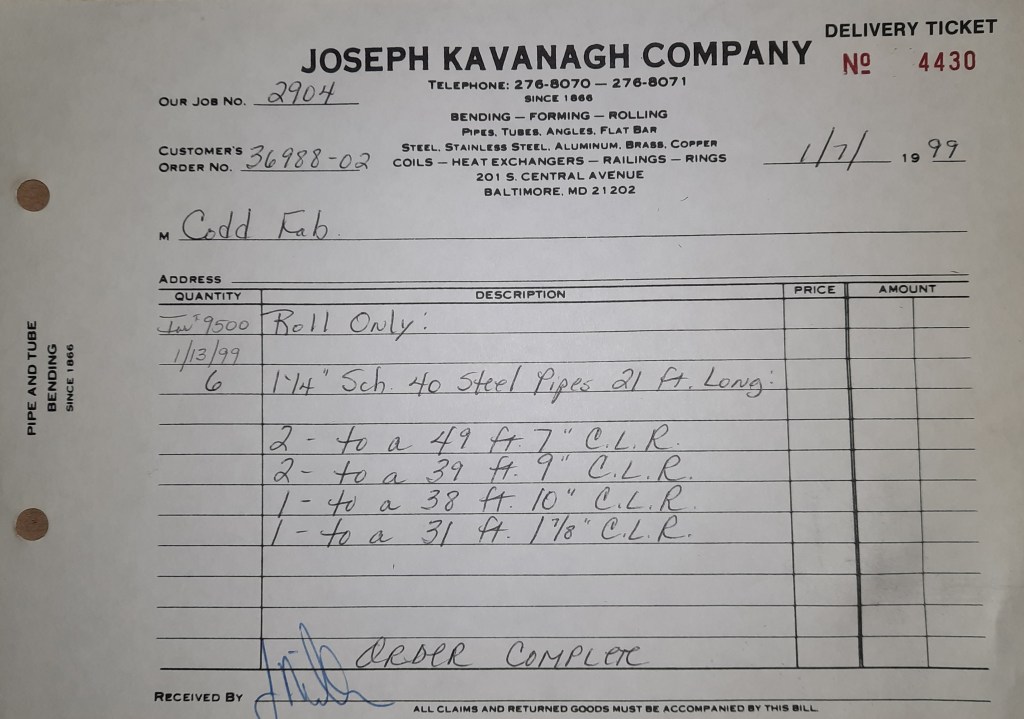 DELIVERY TICKET
JOSEPH KAVANAGH COMPANY
Nº 4430
TELEPHONE: 276-8070 — 276-8071
SINCE 1866
OUR JOB NO. 2904
BENDING — FORMING — ROLLING
PIPES, TUBES, ANGLES, FLAT BAR
STEEL, STAINLESS STEEL, ALUMINUM, BRASS, COPPER
CUSTOMER'S ORDER NO. 36988-02
COILS — HEAT EXCHANGERS — RAILINGS — RINGS
1/7/ 1999
201 S. CENTRAL AVENUE
BALTIMORE, MD 21202
M Codd Fab.
ADDRESS
QUANTITY DESCRIPTION PRICE AMOUNT
9500 Roll Only:
1/13/99
6 1 1/4" Sch. 40 Steel Pipes 21 ft. Long:
2 - to a 49 ft. 7" C.L.R.
2 - to a 39 ft. 9" C.L.R.
1 - to a 38 ft. 10" C.L.R.
1 - to a 31 ft. 1 7/8" C.L.R.
ORDER COMPLETE
RECEIVED BY
ALL CLAIMS AND RETURNED GOODS MUST BE ACCOMPANIED BY THIS BILL
PIPE AND TUBE
BENDING
SINCE 1866